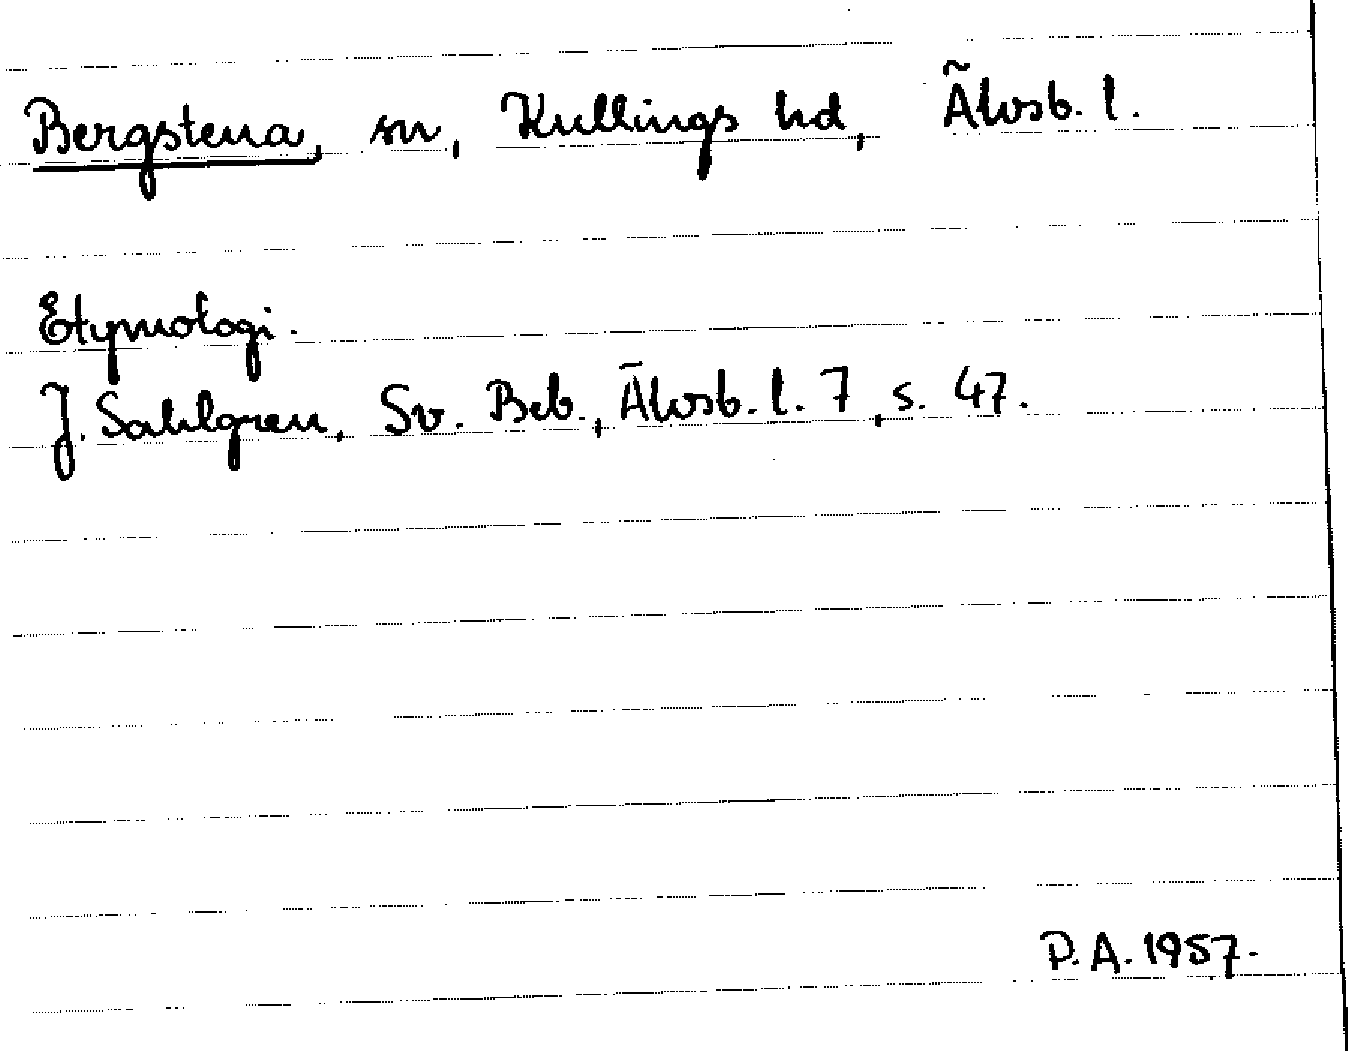 Bergstena, sn, Kullings hd, Älvsb. l.
Etymologi.
J. Sahlgren, Sv. Beb., Älvsb. l. 7, s. 47.
P.A. 1957.